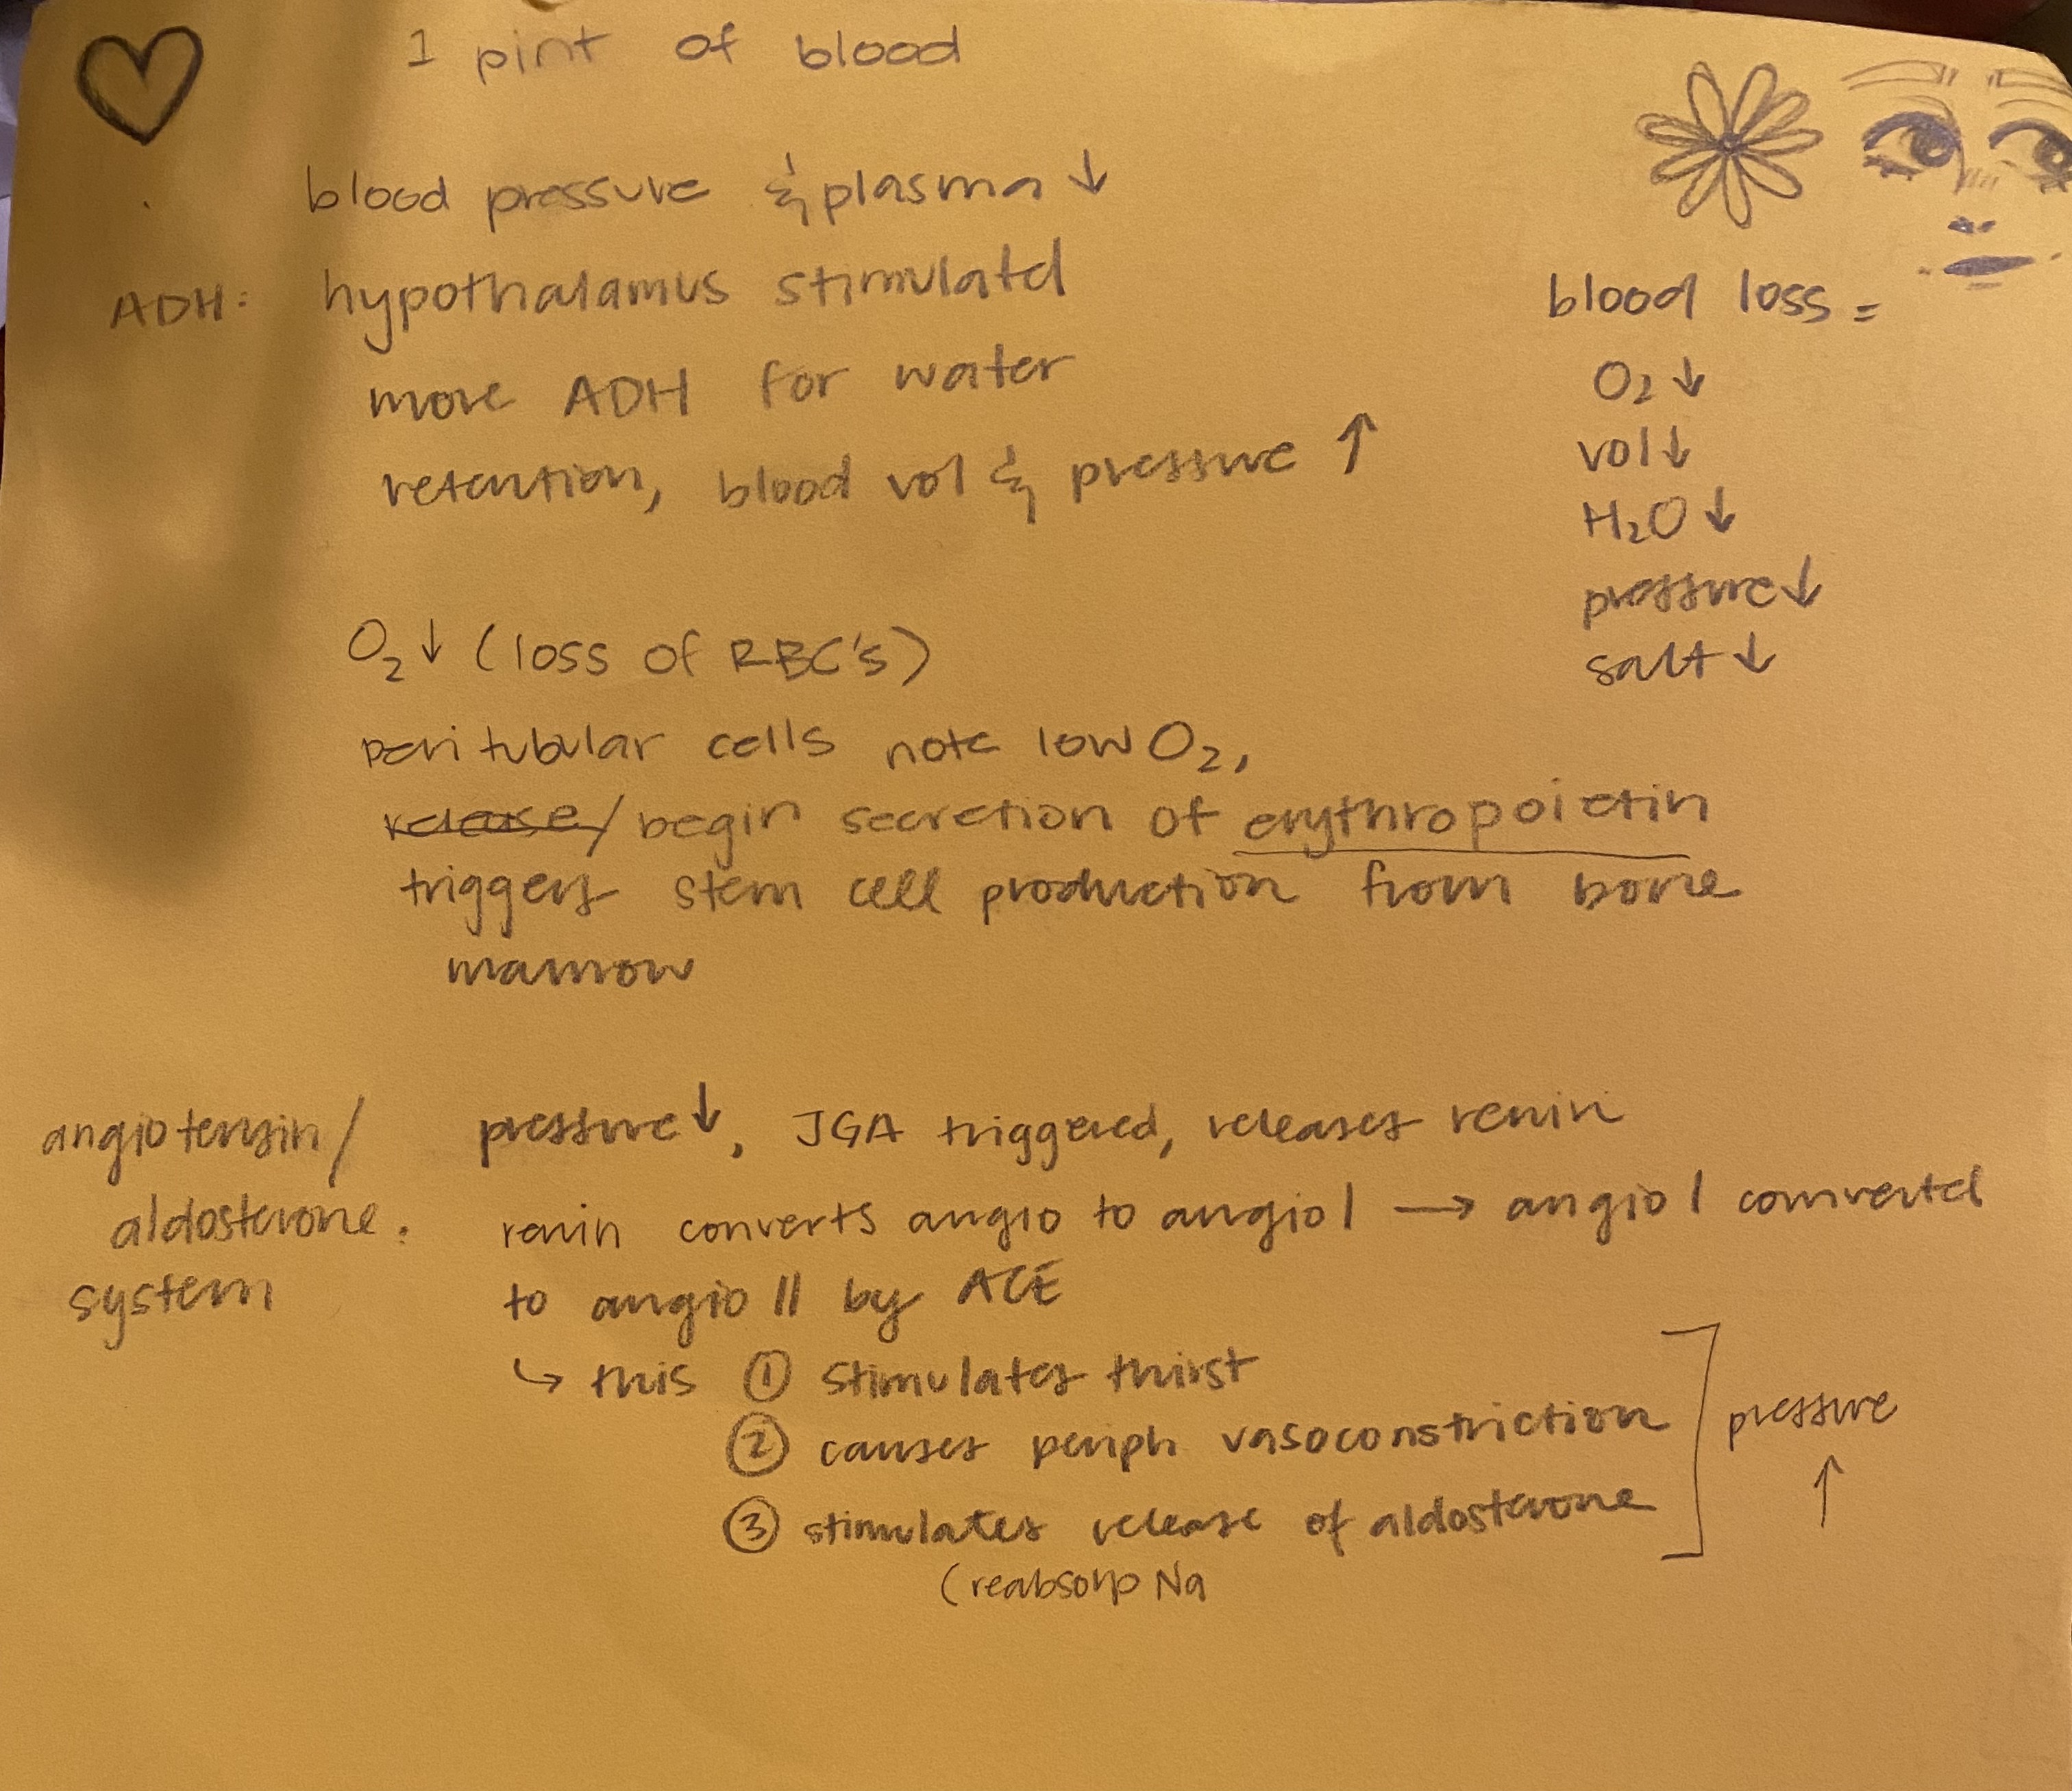 1 pint of blood
blood pressure & plasma ↓
ADH: hypothalamus stimulatd
more ADH for water
retention, blood vol & pressure ↑
blood loss =
O₂ ↓
vol ↓
H₂O ↓
pressure ↓
salt ↓
O₂ ↓ (loss of RBC's)
peritubular cells note low O₂,
release/ begin secretion of erythropoietin
triggers stem cell production from bone
marrow
angiotensin/
aldosterone:
system
pressure ↓, JGA triggered, releases renin
renin converts angio to angio I → angio I converted
to angio II by ACE
↳ this ① stimulates thirst
② causes periph vasoconstriction
③ stimulates release of aldosterone
(reabsorp Na
pressure
↑